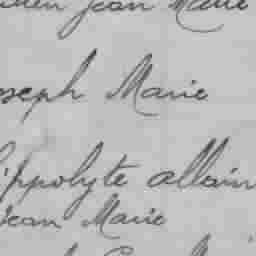 Jean Marie
oseph Marie
ippolyte allain
Jean Marie